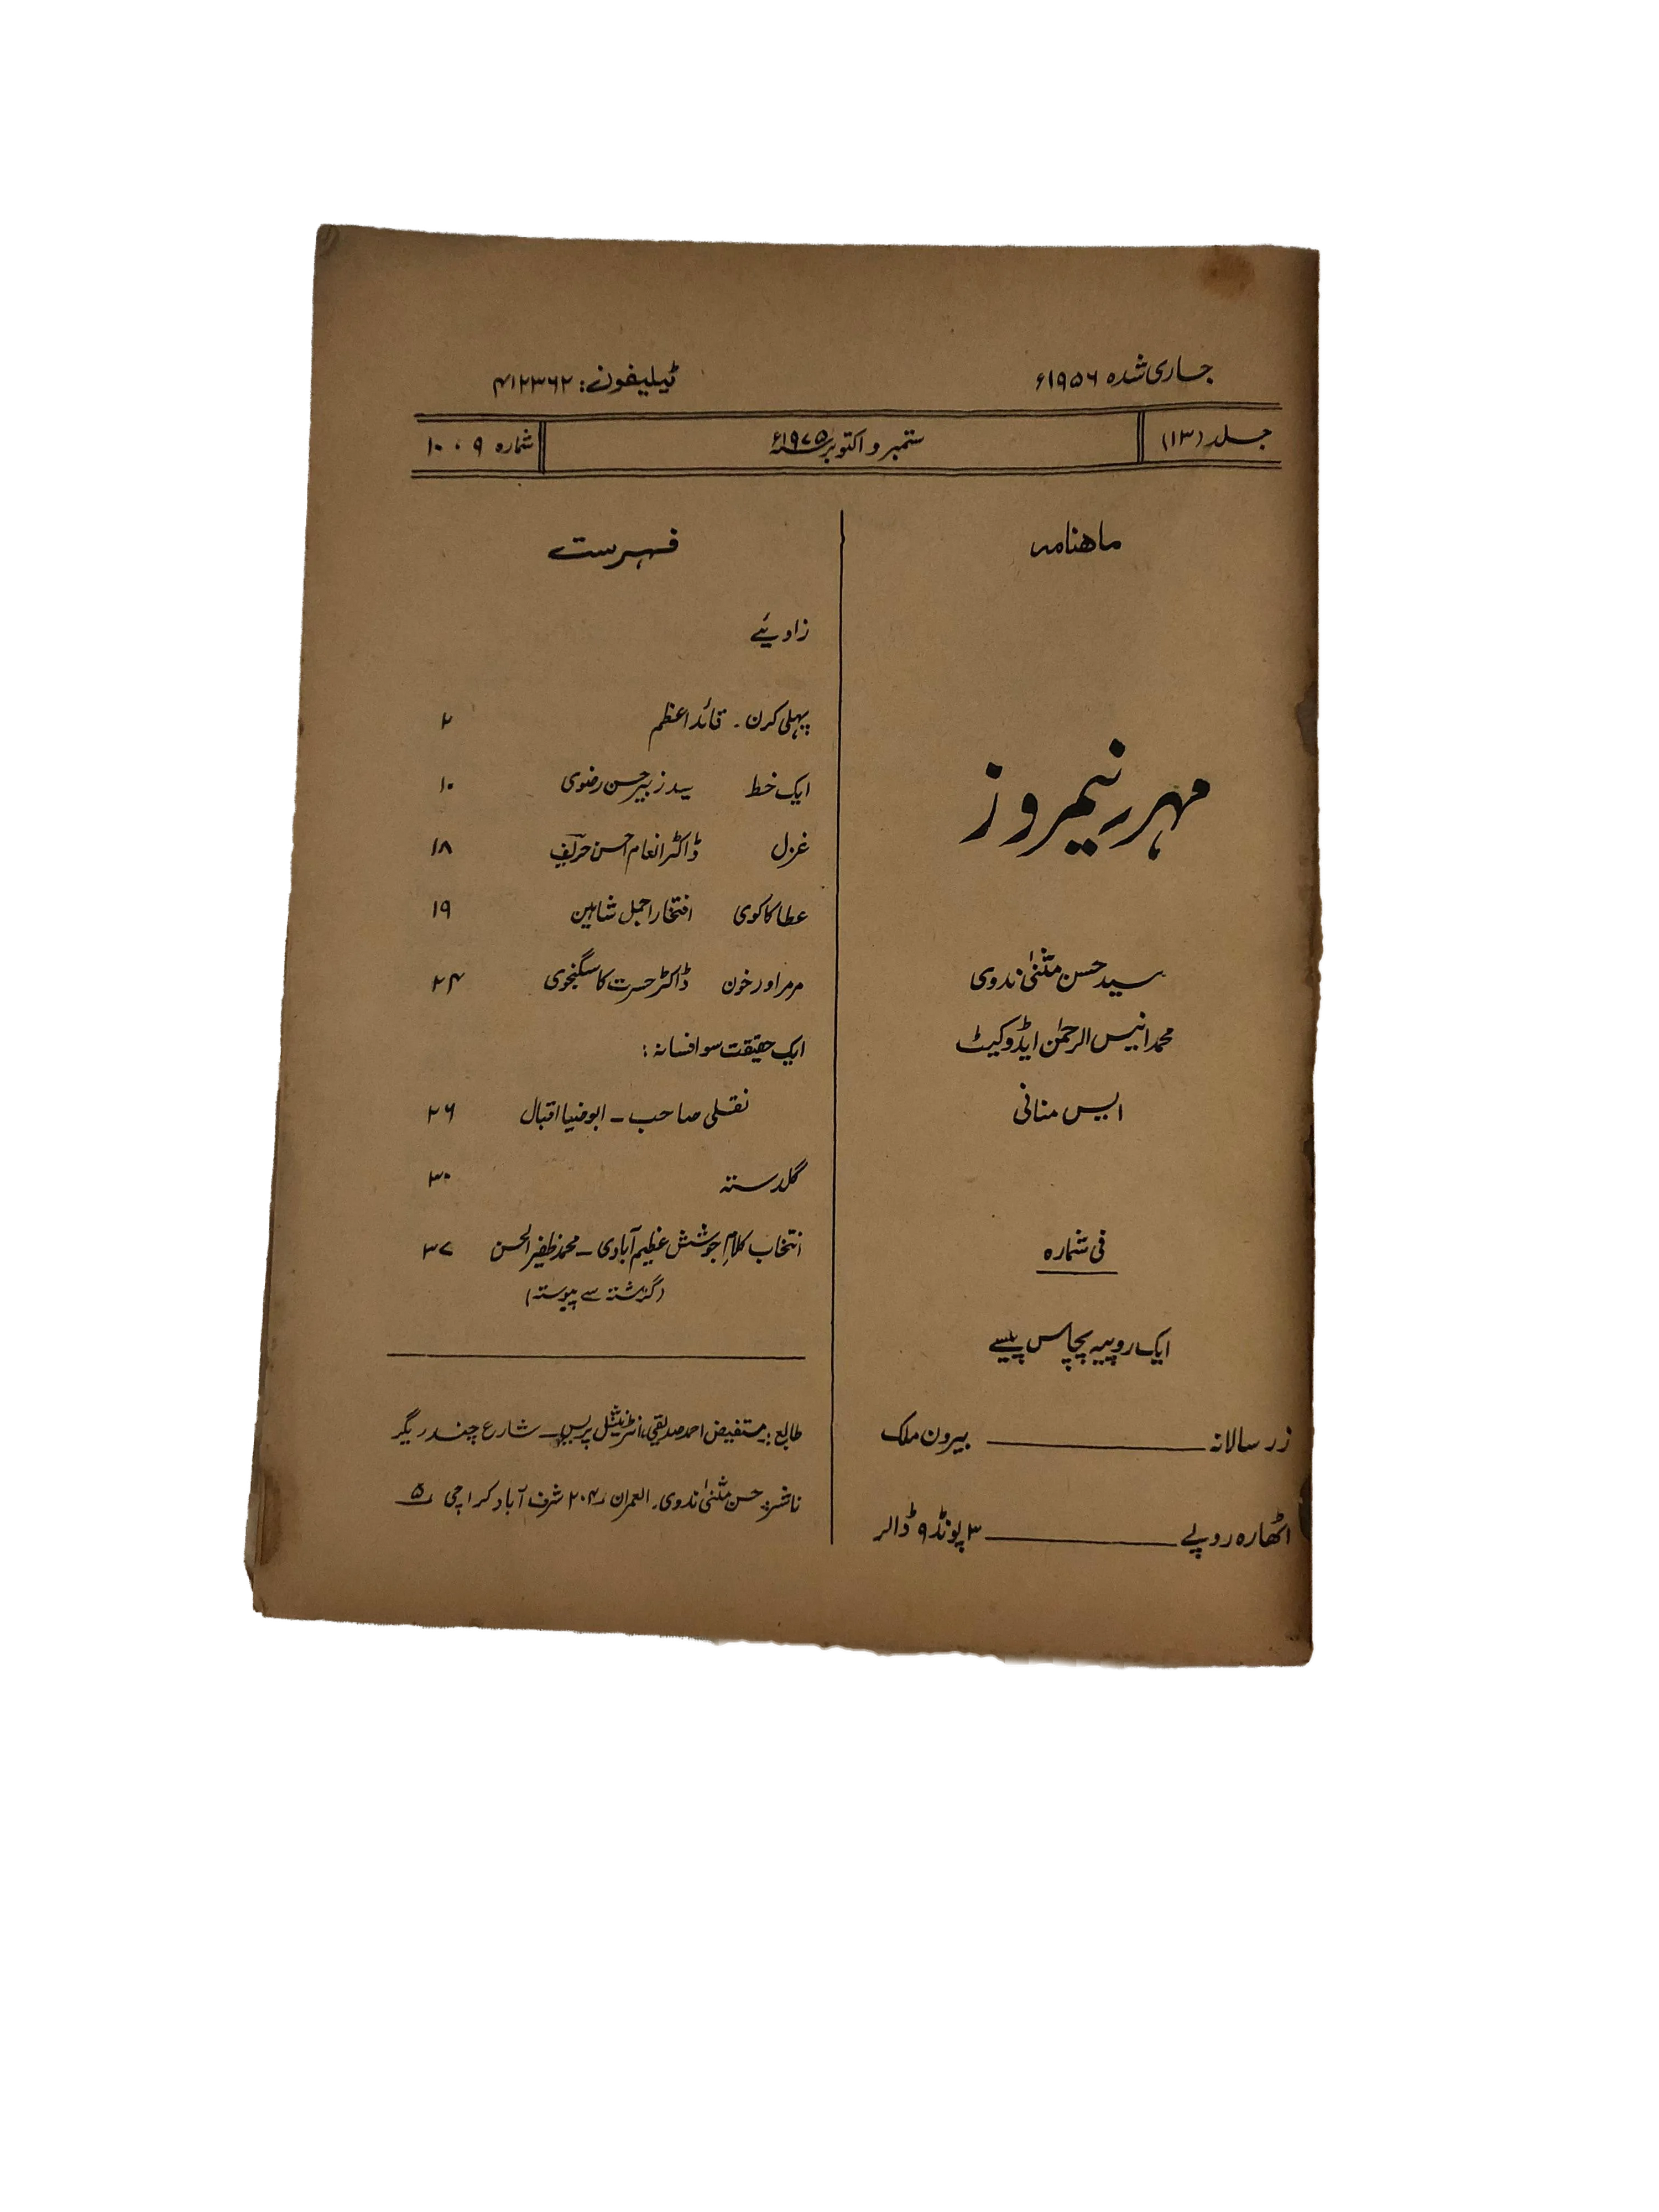 جاری شدہ ۱۹۵۶ء
ٹیلیفون: ۴۱۲۳۶۲
جلد (۱۳)
ستمبر و اکتوبر ۱۹۷۵ء
شمارہ ۹ ، ۱۰
ماھنامہ
مہر نیمروز
سید حسن مثنیٰ ندوی
محمد انیس الرحمٰن ایڈوکیٹ
ایس منانی
فی شمارہ
ایک روپیہ پچاس پیسے
زر سالانہ ــــــــــ بیرون ملک
اٹھارہ روپے ــــــــــ ۳ پونڈ ۹ ڈالر
فہرست
زاویئے
پہلی کرن ۔ قائد اعظم ۲
ایک خط سید زبیر حسن رضوی ۱۰
غزل ڈاکٹر انعام احسن حریف ۱۸
عطا کاکوی افتخار اجمل شاہین ۱۹
مرمر اور خون ڈاکٹر حسرت کاسگنجوی ۲۴
ایک حقیقت سو افسانہ :
نقلی صاحب ــ ابو ضیا اقبال ۲۶
گلدستہ ۳۰
انتخاب کلامِ جوشش عظیم آبادی ــ محمد ظفیر الحسن ۳۷
(گذشتہ سے پیوستہ)
طابع : مستفیض احمد صدیقی، انٹرنیشنل پریس ــ شارع چندریگر
ناشر : حسن مثنیٰ ندوی، العمران ۲۰۴ شرف آباد کراچی ۵